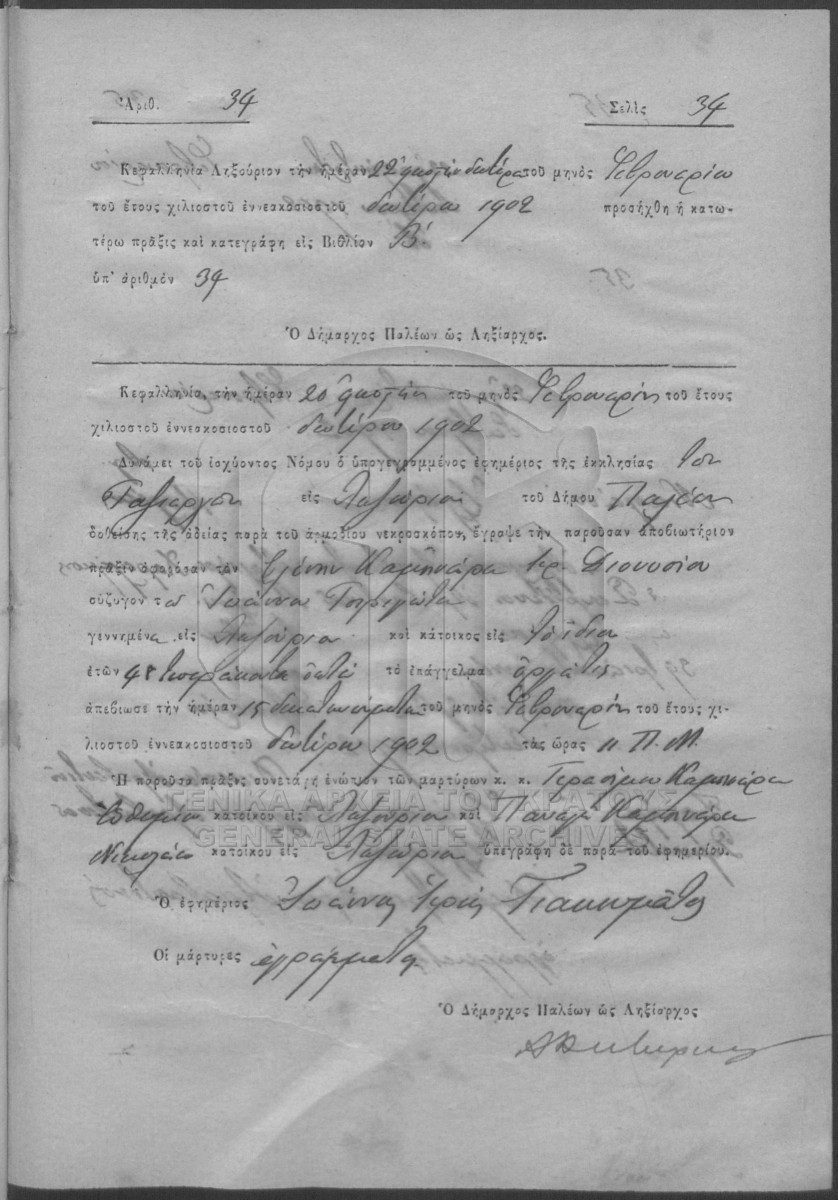 Ἀριθ. 34 Σελὶς 34
Κεφαλληνία Ληξούριον τὴν ἡμέραν 22 εἰκοστὴν δευτέραν τοῦ μηνὸς Φεβρουαρίου
τοῦ ἔτους χιλιοστοῦ ἐννεακοσιοστοῦ δευτέρου 1902 προσήχθη ἡ κατω-
τέρω πρᾶξις καὶ κατεγράφη εἰς Βιβλίον Β΄
ὑπ' ἀριθμὸν 34
Ὁ Δήμαρχος Παλέων ὡς Ληξίαρχος.
Κεφαλληνία, τὴν ἡμέραν 20 εἰκοστὴν τοῦ μηνὸς Φεβρουαρίου τοῦ ἔτους
χιλιοστοῦ ἐννεακοσιοστοῦ δευτέρου 1902
Δυνάμει τοῦ ἰσχύοντος Νόμου ὁ ὑπογεγραμμένος ἐφημέριος τῆς ἐκκλησίας τῶν
Ταξιαρχῶν εἰς τοῦ Δήμου Παλέων
δοθείσης τῆς ἀδείας παρὰ τοῦ ἁρμοδίου νεκροσκόπου, ἔγραψε τὴν παροῦσαν ἀποβιωτήριον
πρᾶξιν ἀφορῶσαν τὴν Ἑλένην Καμηνάρα Διονυσίου
σύζυγον τοῦ Ἰωάννου
γεννημένα εἰς καὶ κάτοικος εἰς τὸ ἴδιον
ἐτῶν τεσσαράκοντα ὀκτὼ τὸ ἐπάγγελμα ἐργάτις
ἀπεβίωσε τὴν ἡμέραν 15 δεκάτην πέμπτην τοῦ μηνὸς Φεβρουαρίου τοῦ ἔτους χι-
λιοστοῦ ἐννεακοσιοστοῦ δευτέρου 1902 τὰς ὥρας Π. Μ.
Ἡ παροῦσα πρᾶξις συνετάγη ἐνώπιον τῶν μαρτύρων κ. κ. Γερασίμου Καμηνάρα
Εὐθυμίου κατοίκου εἰς καὶ Παναγῆ Καμηνάρα
Νικολάου κατοίκου εἰς ὑπεγράφη δὲ παρὰ τοῦ ἐφημερίου.
ΓΕΝΙΚΑ ΑΡΧΕΙΑ ΤΟΥ ΚΡΑΤΟΥΣ
GENERAL STATE ARCHIVES
Ὁ ἐφημέριος Ἰωάννης Ἱερεὺς
Οἱ μάρτυρες ἀγράμματοι
Ὁ Δήμαρχος Παλέων ὡς Ληξίαρχος